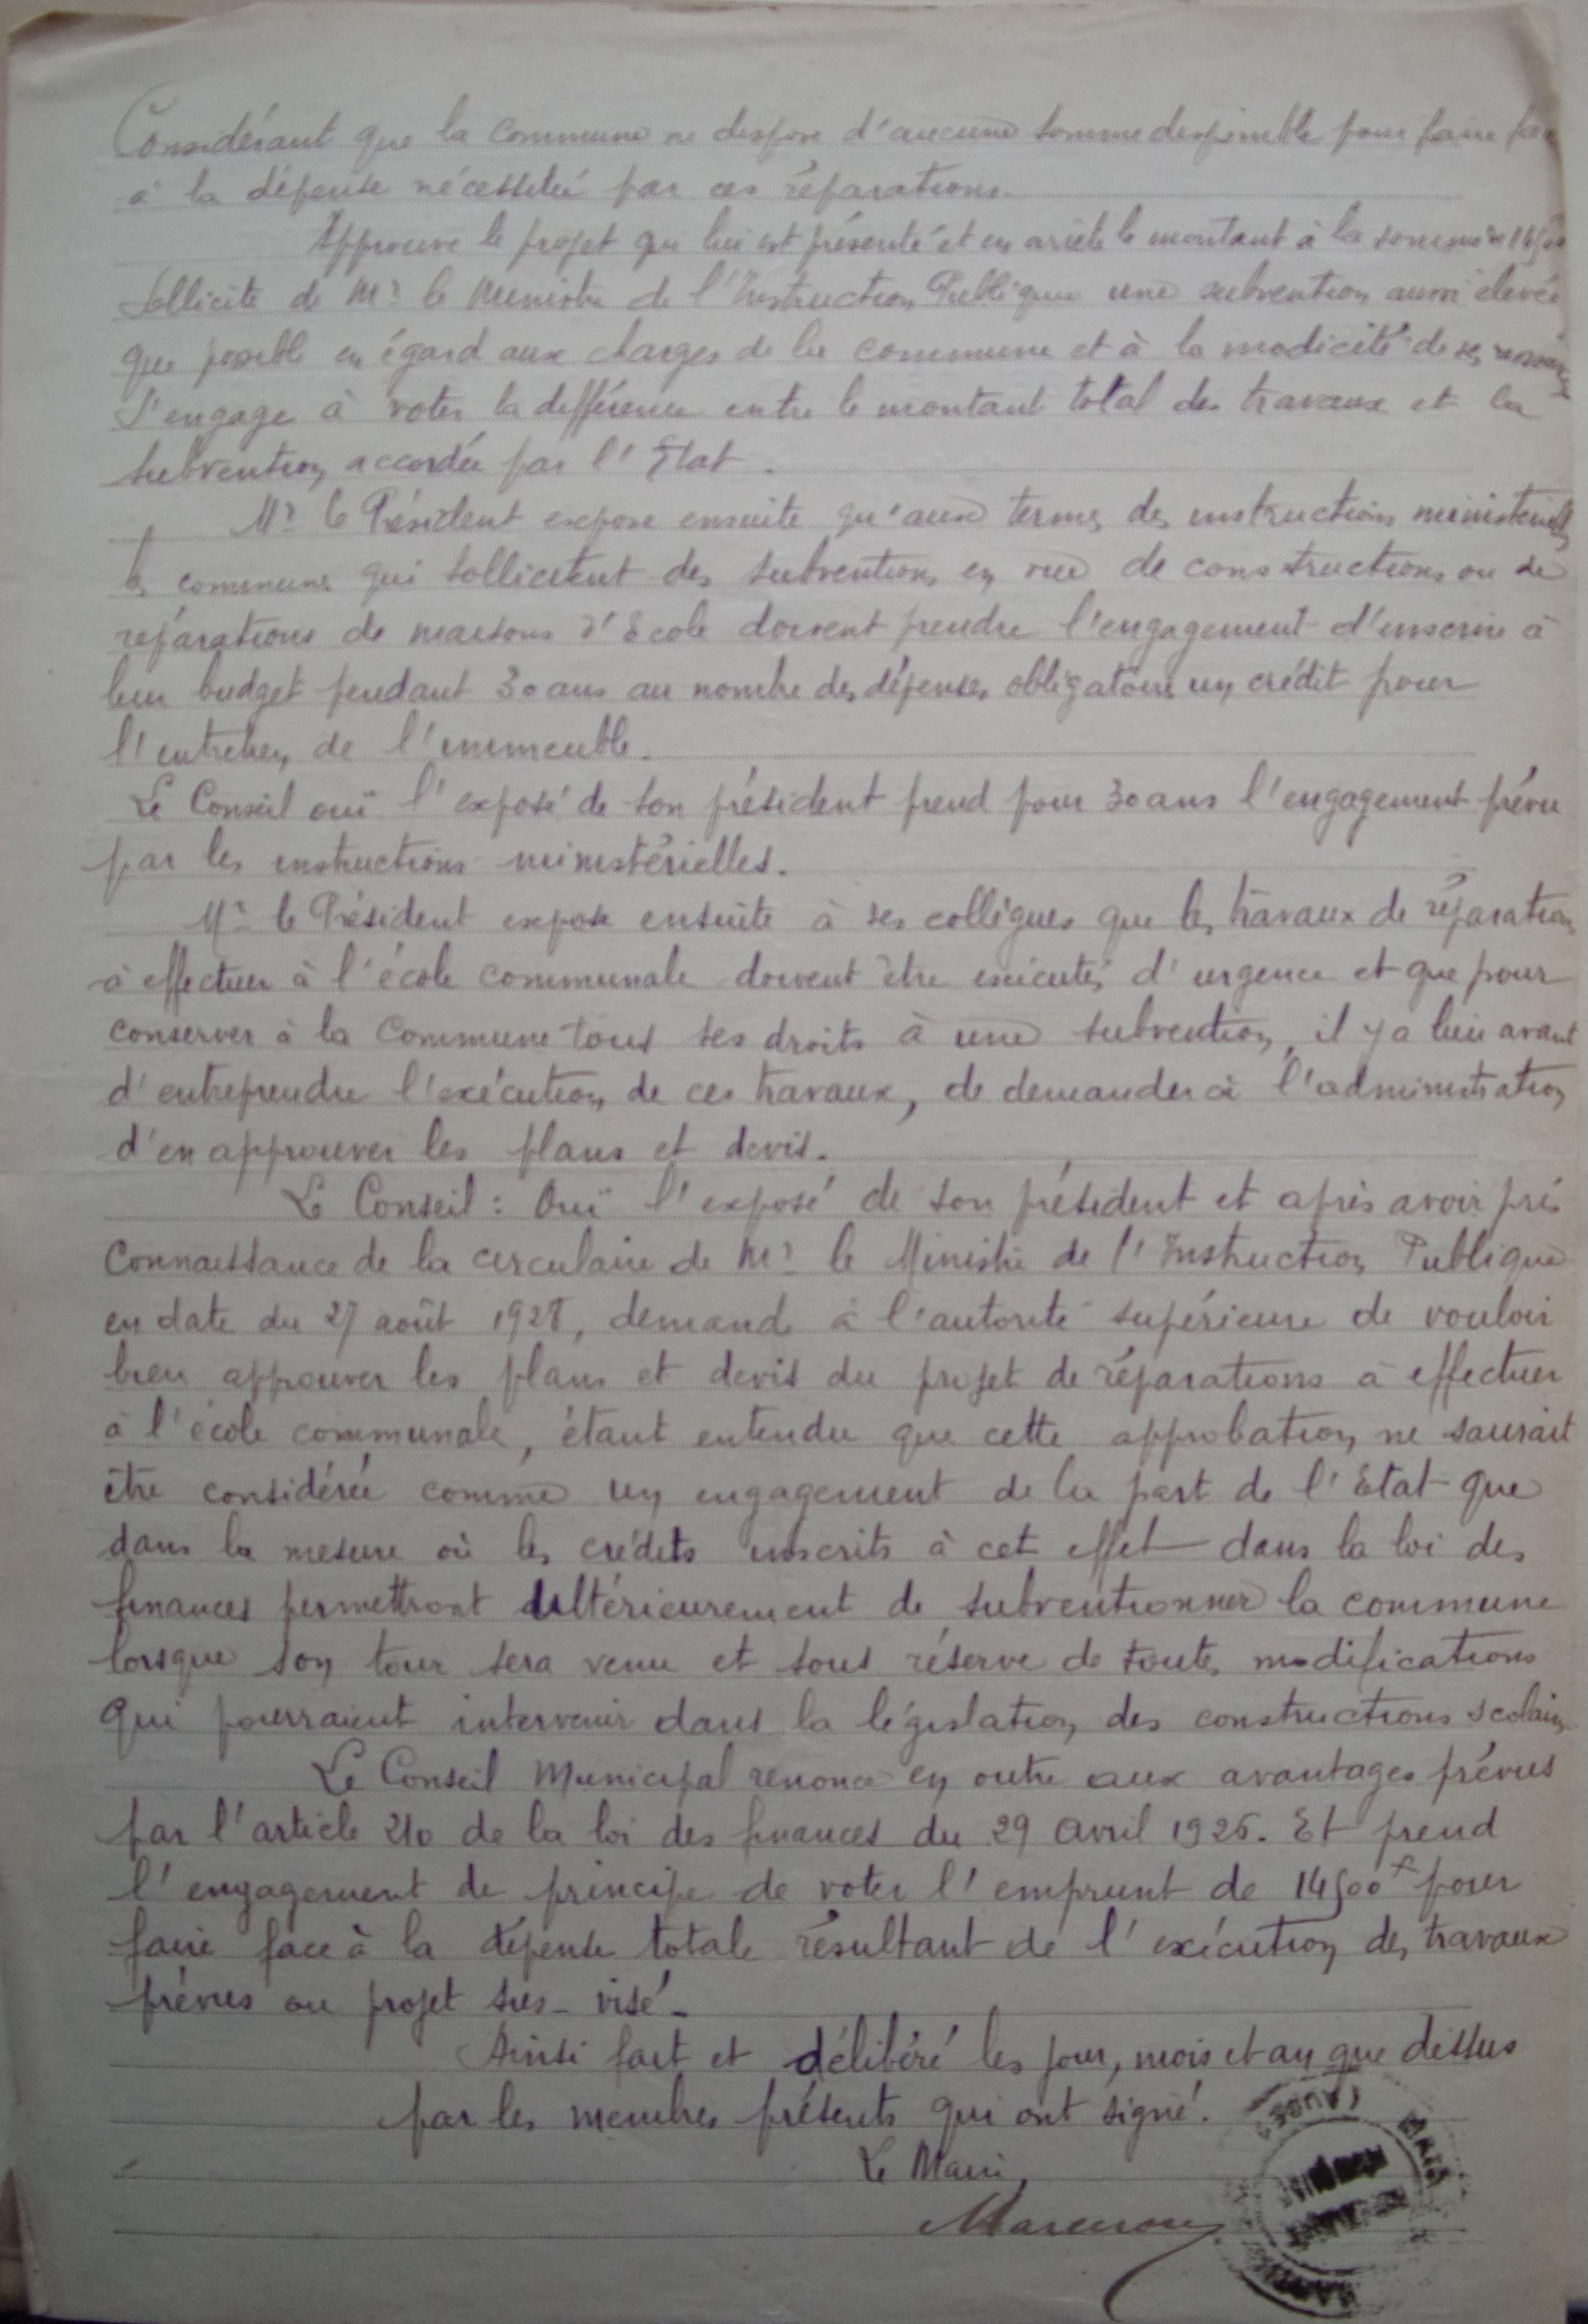 Considérant que la commune ne dispose d'aucune somme disponible pour faire face
à la dépense nécessitée par ces réparations.
Approuve le projet qui lui est présenté et en arrête le montant à la somme de
Sollicite de Mr le Ministre de l'Instruction Publique une subvention aussi élevée
que possible en égard aux charges de la commune et à la modicité de ses ressources
S'engage à voter la différence entre le montant total des travaux et la
subvention accordée par l'Etat.
Mr le Président expose ensuite qu'aux termes des instructions ministérielles
les communes qui sollicitent des subventions en vue de constructions ou de
réparations de maisons d'Ecole doivent prendre l'engagement d'inscrire à
leur budget pendant 30 ans au nombre des dépenses obligatoires un crédit pour
l'entretien de l'immeuble.
Le Conseil ouï l'exposé de son président prend pour 30 ans l'engagement prévu
par les instructions ministérielles.
Mr le Président expose ensuite à ses collègues que les travaux de réparations
à effectuer à l'école communale doivent être exécutés d'urgence et que pour
conserver à la Commune tous ses droits à une subvention, il y a lieu avant
d'entreprendre l'exécution de ces travaux, de demander à l'administration
d'en approuver les plans et devis.
Le Conseil : Ouï l'exposé de son président et après avoir pris
connaissance de la circulaire de Mr le Ministre de l'Instruction Publique
en date du 27 août 1928, demande à l'autorité supérieure de vouloir
bien approuver les plans et devis du projet de réparations à effectuer
à l'école communale, étant entendu que cette approbation ne saurait
être considérée comme un engagement de la part de l'Etat que
dans la mesure où les crédits inscrits à cet effet dans la loi des
finances permettront ultérieurement de subventionner la commune
lorsque son tour sera venu et sous réserve de toutes modifications
qui pourraient intervenir dans la législation des constructions scolaires
Le Conseil Municipal renonce en outre aux avantages prévus
par l'article 210 de la loi des finances du 29 avril 1926. Et prend
l'engagement de principe de voter l'emprunt de 14500f pour
faire face à la dépense totale résultant de l'exécution des travaux
prévus au projet sus-visé.
Ainsi fait et délibéré les jour, mois et an que dessus
par les membres présents qui ont signé.
Le Maire,